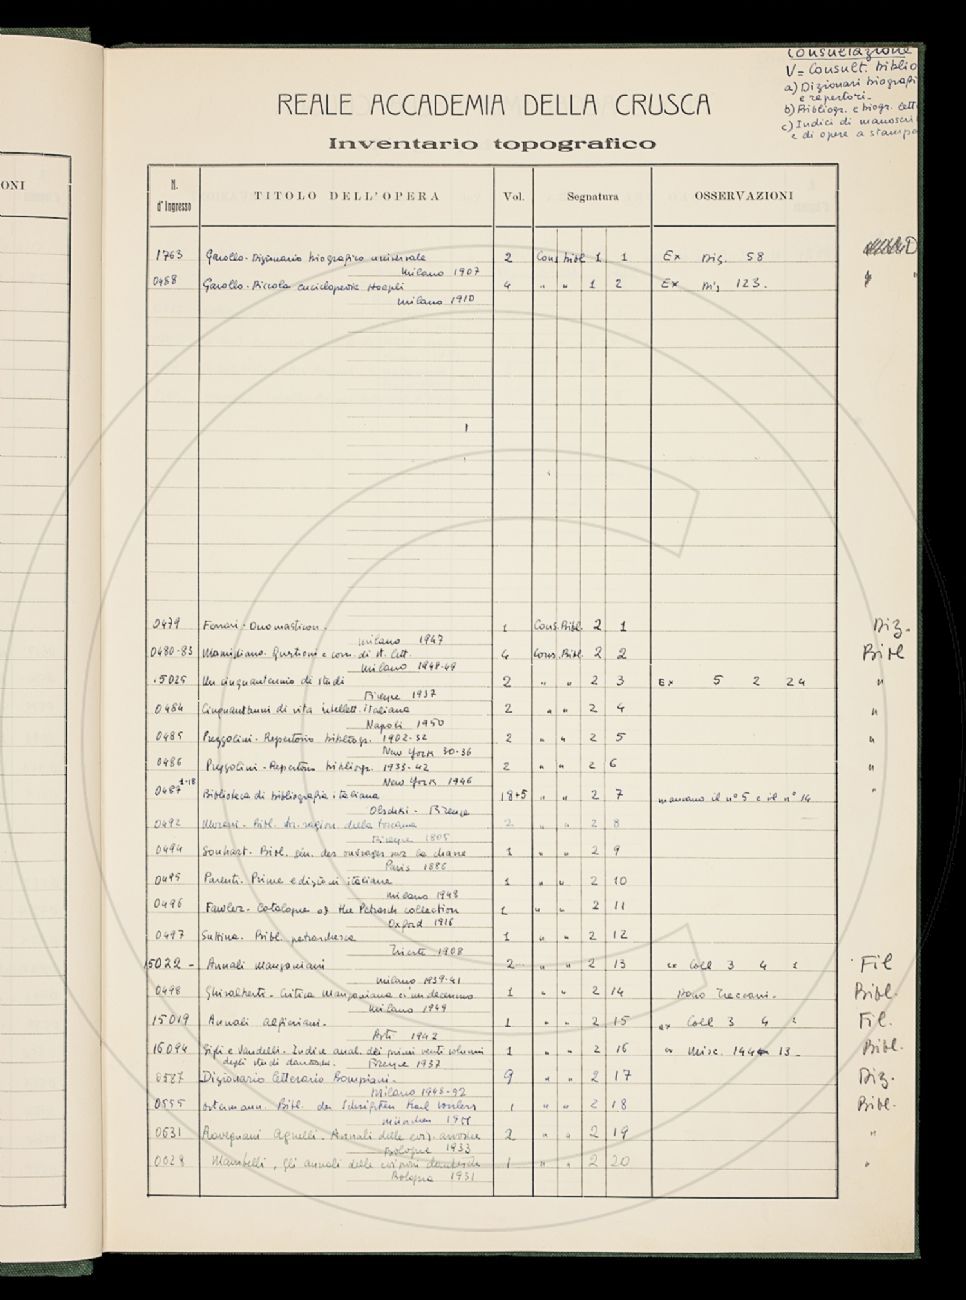 Consultazione
V = Consult. biblio
a) Dizionari biografi
e repertori.
b) Bibliogr. e biogr. lett
c) Indici di manoscri
e di opere a stampa
ONI
REALE ACCADEMIA DELLA CRUSCA
Inventario topografico
N. d'Ingresso TITOLO DELL'OPERA Vol. Segnatura OSSERVAZIONI
1763 Garollo - Dizionario biografico universale 2 Cons Bibl 1 1 Ex Diz. 58
Milano 1907
0458 Garollo - Piccola enciclopedia Hoepli 4 " " 1 2 Ex Diz 123.
Milano 1910
0479 Ferrari - Onomasticon. 1 Cons. Bibl. 2 1 Diz.
Milano 1947
0480-83 Momigliano. Questioni e corr. di st. lett. 4 Cons. Bibl. 2 2 Bibl
Milano 1948-49
15025 Un cinquantennio di studi 2 " " 2 3 Ex 5 2 24 "
Firenze 1937
0484 Cinquant'anni di vita intellett. italiana 2 " " 2 4 "
Napoli 1950
0485 Prezzolini - Repertorio bibliogr. 1902-32 2 " " 2 5 "
New York 30-36
0486 Prezzolini - Repertorio bibliogr. 1933-42 2 " " 2 6 "
New York 1946
0487 1-18 Biblioteca di bibliografia italiana 18+5 " " 2 7 mancano il n° 5 e il n° 14 "
Olschki - Firenze
0492 Moreni - Bibl. st. ragion. della Toscana 2 " " 2 8
Firenze 1805
0494 Souhart - Bibl. gén. des ouvrages sur la chasse 1 " " 2 9
Paris 1886
0495 Parenti. Prime edizioni italiane 1 " " 2 10
Milano 1948
0496 Fowler - Catalogue of the Petrarch collection 1 " " 2 11
Oxford 1916
0497 Suttina. Bibl. petrarchesca 1 " " 2 12
Trieste 1908
15022 - Annali manzoniani 2 " " 2 13 ex Coll 3 4 1 Fil
Milano 1939-41
0498 Ghisalberti - Critica Manzoniana di un decennio 1 " " 2 14 Dono Treccani. Bibl.
Milano 1949
15019 Annali alfieriani. 1 " " 2 15 ex Coll 3 4 2 Fil.
Asti 1942
16094 Gigli e Vandelli - Indice anal. dei primi venti volumi 1 " " 2 16 ex Misc. 144 13 - Bibl.
degli studi danteschi. Firenze 1937
0587 Dizionario letterario Bompiani. 9 " " 2 17 Diz.
Milano 1948-52
0555 Ostermann. Bibl. der Schriften Karl Vosslers 1 " " 2 18 Bibl.
München 1951
0631 Ravegnani Agnelli. Annali delle ediz. ariostee 2 " " 2 19 "
Bologna 1933
0028 Mambelli, Gli annali delle edizioni dantesche 1 " " 2 20 "
Bologna 1931